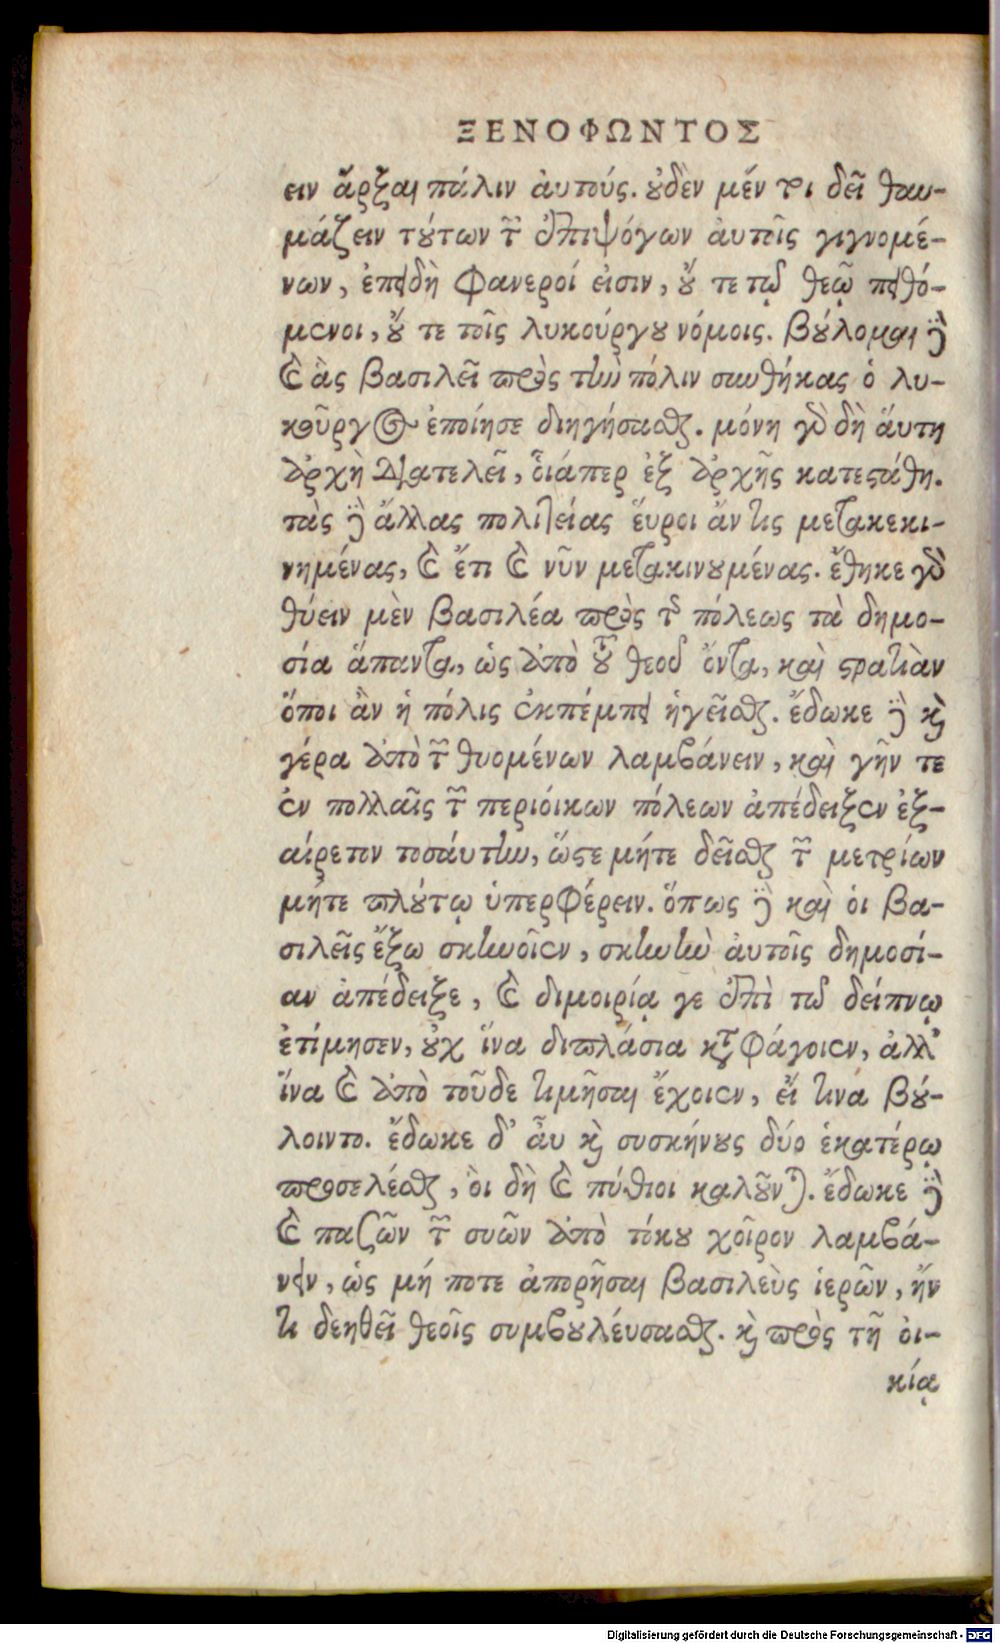 ΞΕΝΟΦΩΝΤΟΣ
ειν ἄρξαι πάλιν ἀυτούς. ȣ̓δὲν μέν τοι δεῖ θαυ-
μάζειν τȣ́των τῶν ἐπιψόγων ἀυτοῖς γιγνομέ-
νων, ἐπειδὴ φανεροί εἰσιν, ȣ̓́ τε τῷ θεῷ πειθό-
μενοι, ȣ̓́ τε τοῖς λυκούργȣ νόμοις. βȣ́λομαι δὲ
καὶ ἃς βασιλεῖ πρὸς τὴν πόλιν συνθήκας ὁ λυ-
κοῦργος ἐποίησε διηγήσασθαι. μόνη γὰρ δὴ ἅυτη
ἀρχὴ διατελεῖ, ὁιάπερ ἐξ ἀρχῆς κατεϛάθη.
τὰς δὲ ἄλλας πολιτείας ἕυροι ἄν τις μετακεκι-
νημένας, καὶ ἔτι καὶ νῦν μετακινȣμένας. ἔθηκε γὰρ
θύειν μὲν βασιλέα πρὸς τῆς πόλεως τὰ δημο-
σία ἅπαντα, ὡς ἀπὸ τȣ͂ θεοῦ ὄντα, καὶ ϛρατιὰν
ὅποι ἂν ἡ πόλις ἐκπέμπει ἡγεῖσθαι. ἔδωκε δὲ καὶ
γέρα ἀπὸ τῶν θυομένων λαμβάνειν, καὶ γῆν τε
ἐν πολλαῖς τῶν περιόικων πόλεων ἀπέδειξεν ἐξ-
αίρετον τοσάυτην, ὥϛε μήτε δεῖσθαι τῶν μετρίων
μήτε πλȣ́τῳ ὑπερφέρειν. ὅπως δὲ καὶ ὁι βα-
σιλεῖς ἔξω σκηνοῖεν, σκηνὴν ἀυτοῖς δημοσί-
αν ἀπέδειξε, καὶ διμοιρίᾳ γε ἐπὶ τῶ δείπνῳ
ἐτίμησεν, ȣ̓χ ἵνα διπλάσια καταφάγοιεν, ἀλλ’
ἵνα καὶ ἀπὸ τοῦδε τιμῆσαι ἔχοιεν, εἴ τινα βȣ́-
λοιντο. ἔδωκε δ’ ἆυ καὶ συσκήνȣς δύο ἑκατέρῳ
προσελέσθαι, ὃι δὴ καὶ πύθιοι καλȣ͂νται. ἔδωκε δὲ
καὶ πασῶν τῶν συῶν ἀπὸ τόκȣ χοῖρον λαμβά-
νειν, ὡς μή ποτε ἀπορῆσαι βασιλεὺς ἱερῶν, ἤν
τι δεηθεῖ θεοῖς συμβȣλέυσασθαι. καὶ πρὸς τῆ ὀι-
κίᾳ
Digitalisierung gefördert durch die Deutsche Forschungsgemeinschaft - DFG